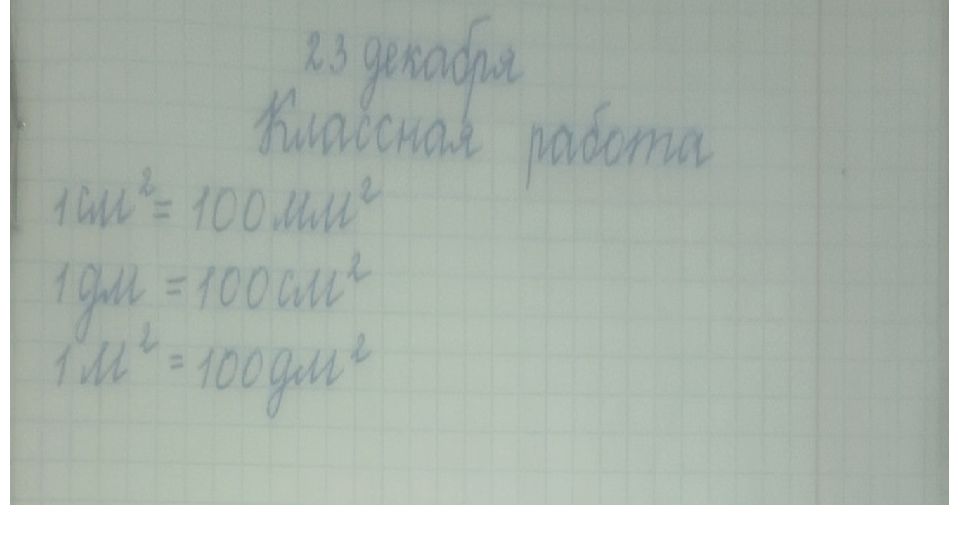 23 декабря
Классная работа
1см²= 100мм²
1дм = 100см²
1м² = 100дм²